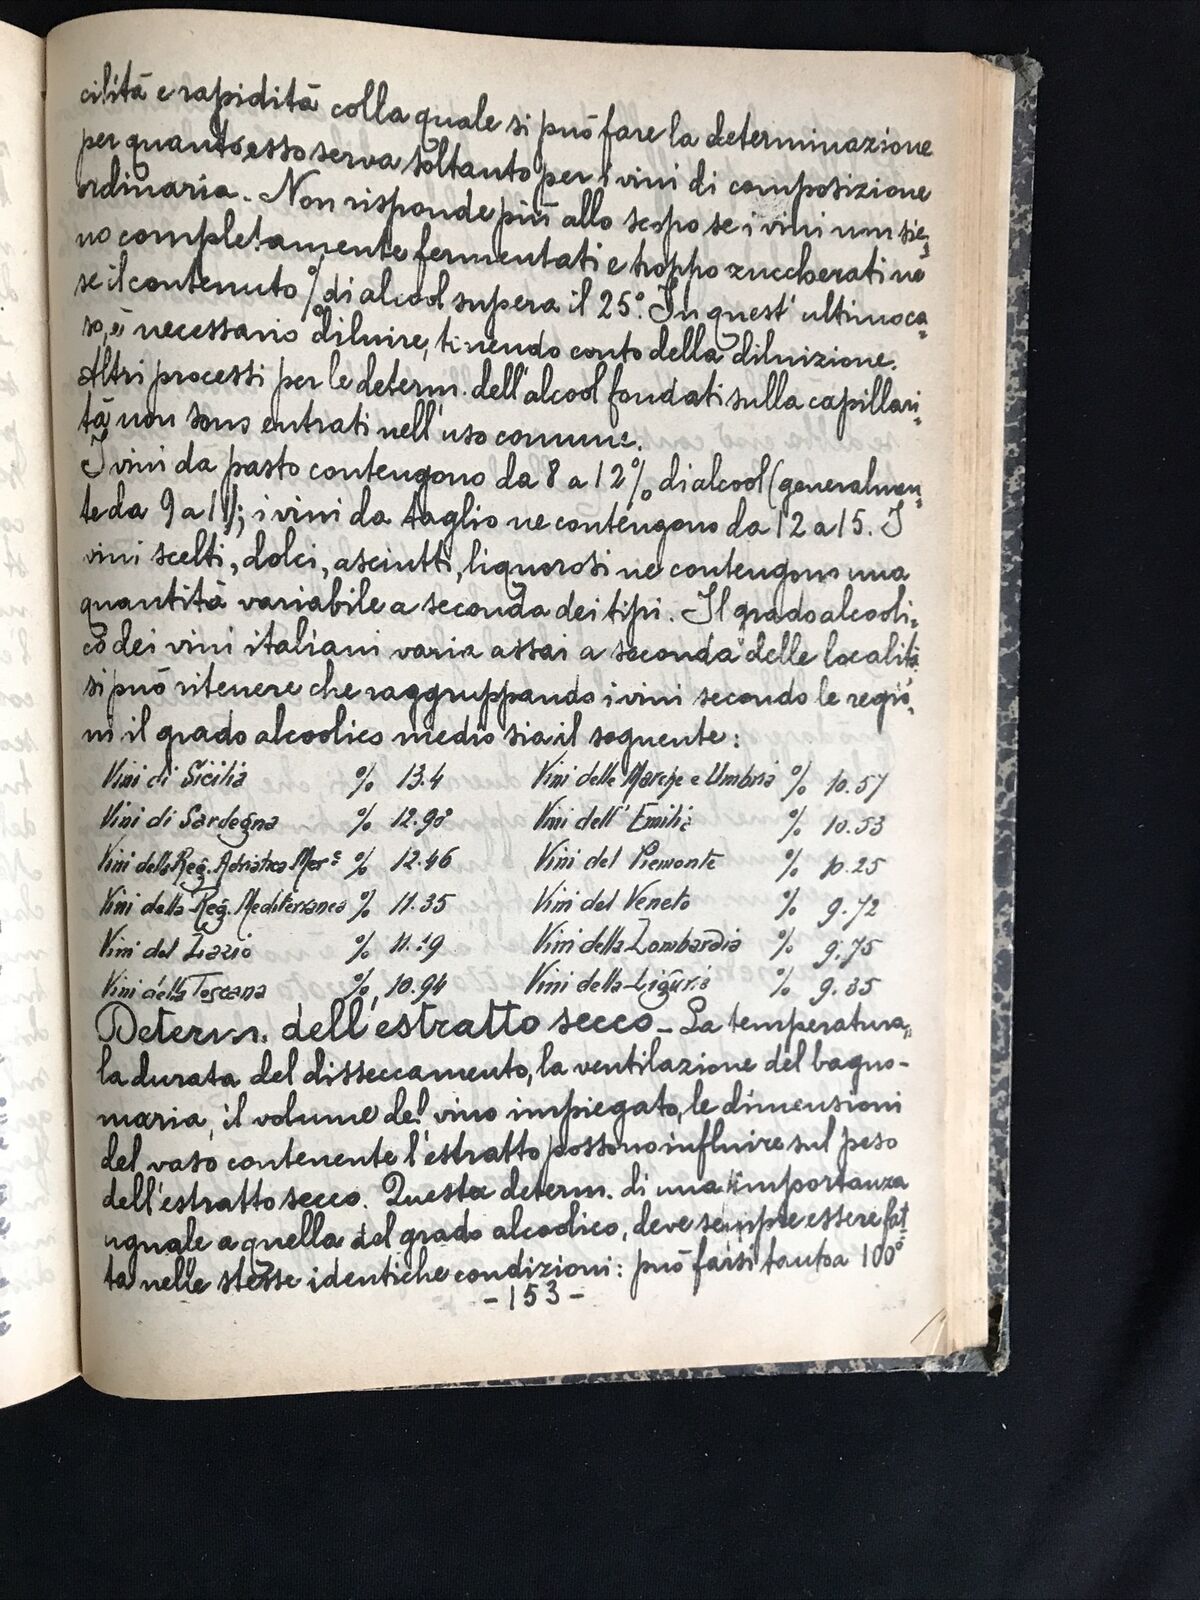 cilità e rapidità colla quale si può fare la determinazione
per quanto esso serva soltanto per i vini di composizione
ordinaria. Non risponde più allo scopo se i vini non sie=
no completamente fermentati e troppo zuccherati ne
se il contenuto % di alcool supera il 25°. In quest'ultimo ca=
so, è necessario diluire, tenendo conto della diluizione.
Altri processi per le determ. dell'alcool fondati sulla capillari=
tà non sono entrati nell'uso comune.
I vini da pasto contengono da 8 a 12% di alcool (generalmen=
te da 9 a 11); i vini da taglio ne contengono da 12 a 15. I
vini scelti, dolci, asciutti, liquorosi ne contengono una
quantità variabile a seconda dei tipi. Il grado alcooli=
co dei vini italiani varia assai a seconda delle località
si può ritenere che raggruppando i vini secondo le regio=
ni il grado alcoolico medio sia il seguente:
Vini di Sicilia % 13.4 Vini delle Marche e Umbria % 10.57
Vini di Sardegna % 12.98 Vini dell'Emilia % 10.53
Vini della Reg. Adriatica Mer. % 12.46 Vini del Piemonte % 10.25
Vini della Reg. Mediterranea % 11.35 Vini del Veneto % 9.72
Vini del Lazio % 11.19 Vini della Lombardia % 9.75
Vini della Toscana % 10.94 Vini della Liguria % 9.35
Determ. dell'estratto secco - La temperatura,
la durata del disseccamento, la ventilazione del bagno-
maria, il volume del vino impiegato, le dimensioni
del vaso contenente l'estratto possono influire sul peso
dell'estratto secco. Questa determ. di una importanza
uguale a quella del grado alcoolico, deve sempre essere fat=
ta nelle stesse identiche condizioni: può farsi tanto a 100°
- 153 -